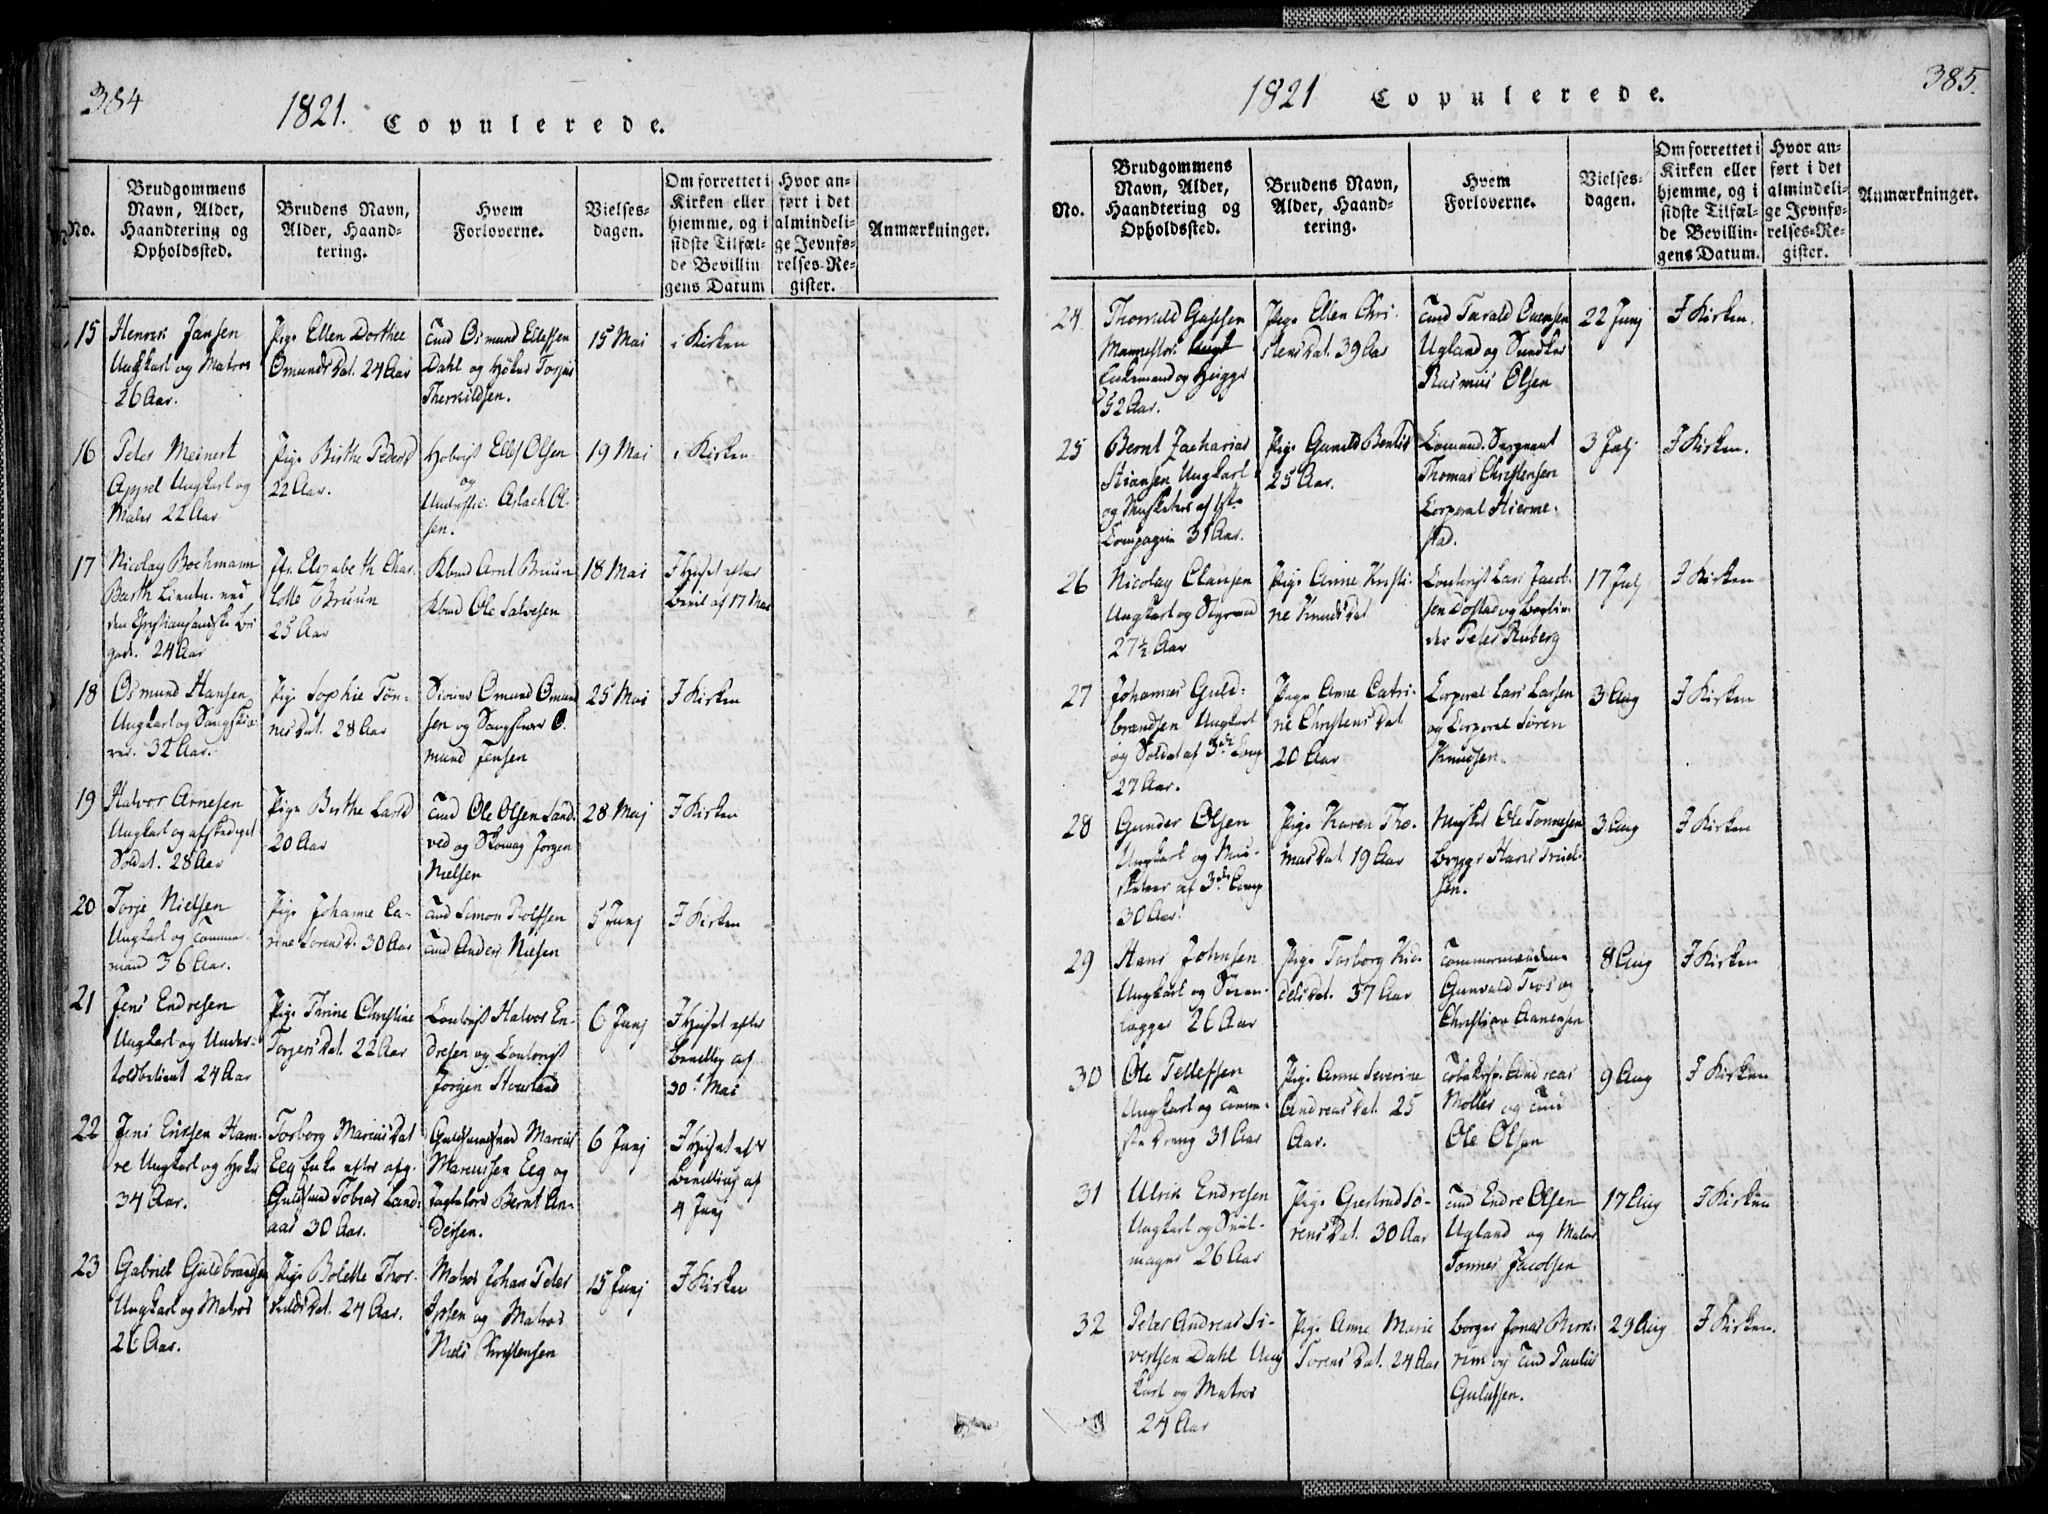 384
1821. Copulerede.
No.
Brudgommens
Navn, Alder,
Haandtering og
Opholdssted.
Brudens Navn,
Alder, Haand-
tering.
Hvem
Forloverne.
Vielses-
dagen.
Om forrettet i
Kirken eller
hjemme, og i
sidste Tilfæl-
de Bevillin
gens Datum
Hvor an-
ført i det
almindeli-
ge Jevnfø-
relses-Re-
gister.
Anmærkninger.
15
Henrik Jansen
Ungkarl og Matros
26 Aar.
Pige Ellen Dorthee
OmundsDat. 24 Aar
Osmund Ellefsen
Dahl og Høker Torjus
Therkildsen.
15 Mai
i Kirken
16
Peter Meinert
Appel Ungkarl og
Maler 22 Aar
Pige Birthe PedersD
22 Aar.
Ellef Olsen
og
Aslach Ol
sen.
19 Mai
i Kirken
17
Nicolay Bochmann
Barth Lieutn. ved
den Christiansandske Bri
gade. 24 Aar
Jfr. Elisabeth Char-
lotte Bruun
25 Aar
Kbmd Arnt Bruun
Kbmd Ole Salvesen
18 Mai
I Huset efter
Bevil af 17 Mai
18
Osmund Hansen
Ungkarl og Saugskiæ-
rer. 32 Aar.
Pige Sophie Tøn-
nesDat. 28 Aar
Omund Omund
sen og Saugskiærer O.
mund Jensen
25 Mai
I Kirken
19
Halvor Arnesen
Ungkarl og afskediget
Soldat. 28 Aar
Pige Birthe LarsD
20 Aar
Ole Olsen Sand-
ved og Skomag Jørgen
Nielsen
28 Maj
I Kirken
20
Torje Nielsen
Ungkarl og Tømmer-
mand 36 Aar.
Pige Johanne Ca-
rine SørensD. 30 Aar
Simon Rolfsen
Anders Nielsen
5 Junj
I Kirken
21
Jens Endresen
Ungkarl og Under-
toldbetient 24 Aar
Pige Trine Christine
TorgersDat. 22 Aar
Halvor En-
dresen og
Jørgen
6 Junj
I Huset efter
Bevilling af
30. Mai
22
Jens Ericsen Ham-
re Ungkarl og Høker
34 Aar.
Torborg MarcusDat
Eeg Enke efter afg.
Guldsmed Tobias Land-
aas 30 Aar.
Guldsmed Marcus
Marcussen Eeg og
Bernt An-
dersen.
6 Junj
I Huset efter
Bevilling af
4 Junj
23
Gabriel Guldbrandsen
Ungkarl og Matros
26 Aar.
Pige Bolette Thor-
kildsDat. 24 Aar.
Matros Johan Peter
og Matros
Niels Christensen
15 Junj
I Kirken
385.
1821 Copulerede.
No.
Brudgommens
Navn, Alder,
Haandtering og
Opholdssted.
Brudens Navn,
Alder, Haand-
tering.
Hvem
Forloverne.
Vielses-
dagen.
Om forrettet i
Kirken eller
hjemme, og i
sidste Tilfæl-
de Bevillin-
gens Datum.
Hvor an-
ført i det
almindeli-
ge Jevnfø-
relses-Re-
gister.
Anmærkninger.
24
Enkemand og
52 Aar.
Pige Ellen Chri-
stensDat. 39 Aar
Tarald
Ugland og
Rasmus Olsen
22 Junj
I Kirken.
25
Bernt Zacharias
Stiansen Ungkarl
og Musketeer af 1ste
Compagnie 31 Aar.
Pige Gunild BentsD
25 Aar.
Command. Sergeant
Thomas Christensen
Corporal Hierme-
stad.
3 Julj
I Kirken.
26
Nicolay Clausen
Ungkarl og Styrmand
27½ Aar
Pige Anne Kristi-
ne KnudsDat
Lars Jacob-
sen og Bogbin-
der Peter Ruberg
17 Julj
I Kirken
27
Johannes Guld-
brandsen Ungkarl
og Soldat af 3de Comp
27 Aar.
Pige Ane Catri-
ne ChristensDat
20 Aar
Corporal Lars Larsen
og Corporal Søren
Knudsen.
3 Aug
I Kirken
28
Gunder Olsen
Ungkarl og Mus-
keteer af 3de Comp
30 Aar.
Pige Karen Tho-
masDat. 19 Aar
Musket Ole Tønnesen
Hans Truel-
sen.
3 Aug
I Kirken
29
Hans Johnsen
Ungkarl og
26 Aar
Pige Torborg Kid-
delsDat. 37 Aar
Tømmermændene
Gunvald
Christian Aanensen
8 Aug
I Kirken
30
Ole Tellefsen
Ungkarl og
Dreng 31 Aar
Pige Anne Severine
AndreasDat. 25
Aar.
Andreas
Møller og
Ole Olsen
9 Aug
I Kirken
31
Ulrik Endresen
Ungkarl og Seil-
mager 26 Aar
Pige Giertrud Sø-
rensDat. 30 Aar
Endre Olsen
Ugland og Matros
Tønnes Jacobsen
17 Aug
I Kirken
32
Peter Andreas Si-
vertsen Dahl Ung
karl og Matros
24 Aar
Pige Anne Marie
SørensDat. 24 Aar
Borger Jonas Birk-
rem og Paulus
Gulufsen.
29 Aug
I Kirken.